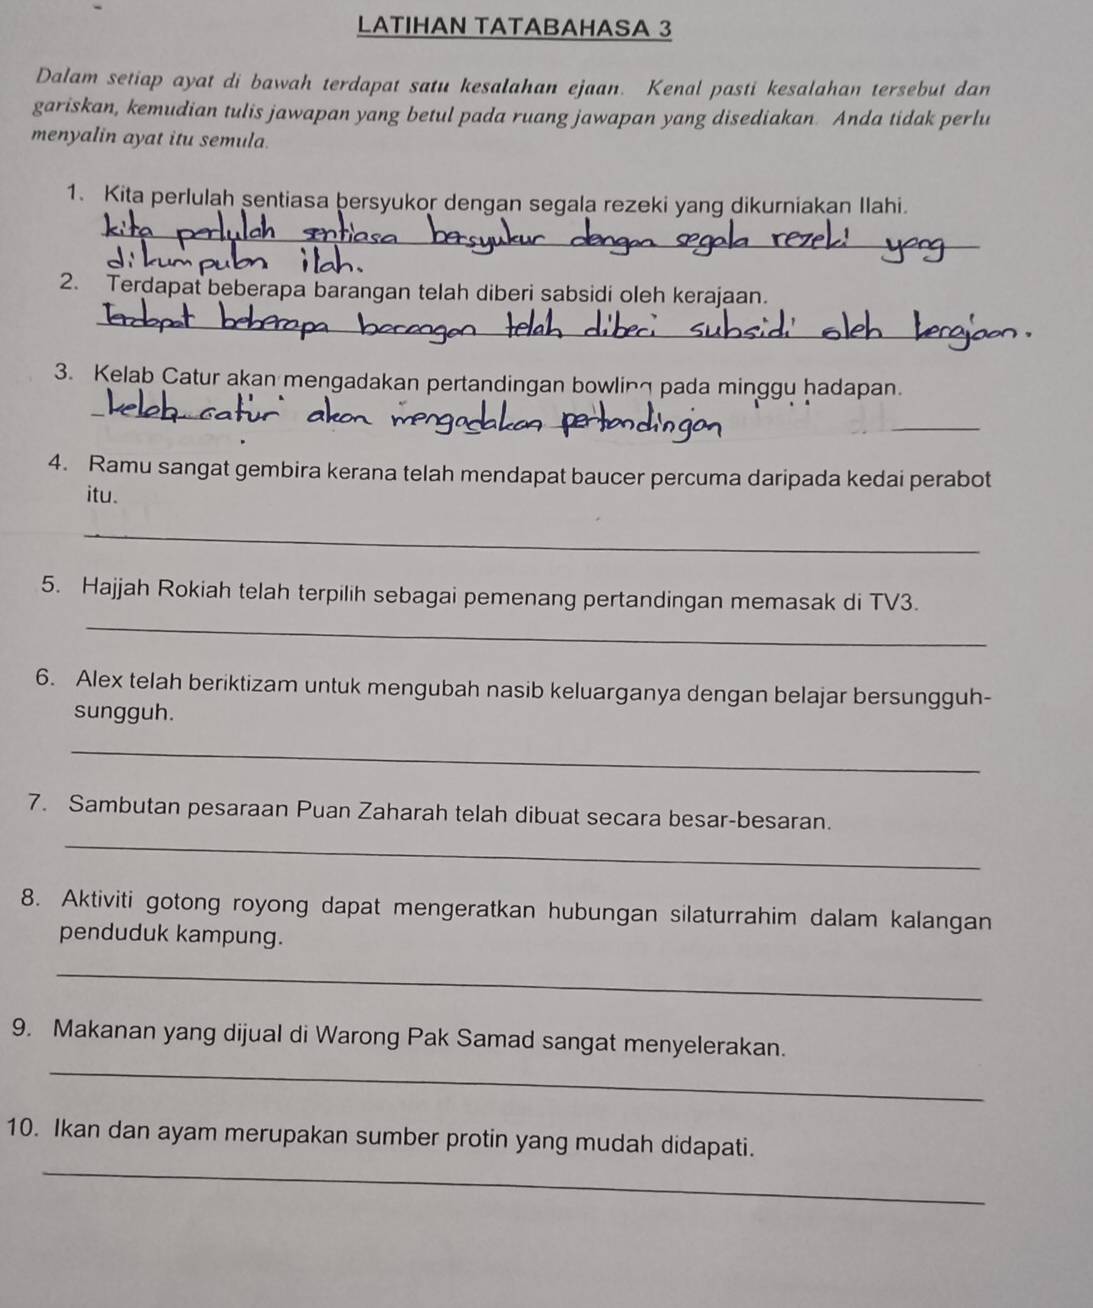 LATIHAN TATABAHASA 3
Dalam setiap ayat di bawah terdapat satu kesalahan ejaan. Kenal pasti kesalahan tersebut dan
gariskan, kemudian tulis jawapan yang betul pada ruang jawapan yang disediakan. Anda tidak perlu
menyalin ayat itu semula.
1. Kita perlulah sentiasa bersyukor dengan segala rezeki yang dikurniakan Ilahi.
kita perlulah sentiasa bersyukur dengan segala rezeki yang
dikumpulan ilah.
2. Terdapat beberapa barangan telah diberi sabsidi oleh kerajaan.
Terdapat beberapa barangan telah diberi subsidi oleh kerajaan.
3. Kelab Catur akan mengadakan pertandingan bowling pada minggu hadapan.
kelab catur akan mengadakan pertandingan
4. Ramu sangat gembira kerana telah mendapat baucer percuma daripada kedai perabot
itu.
5. Hajjah Rokiah telah terpilih sebagai pemenang pertandingan memasak di TV3.
6. Alex telah beriktizam untuk mengubah nasib keluarganya dengan belajar bersungguh-
sungguh.
7. Sambutan pesaraan Puan Zaharah telah dibuat secara besar-besaran.
8. Aktiviti gotong royong dapat mengeratkan hubungan silaturrahim dalam kalangan
penduduk kampung.
9. Makanan yang dijual di Warong Pak Samad sangat menyelerakan.
10. Ikan dan ayam merupakan sumber protin yang mudah didapati.